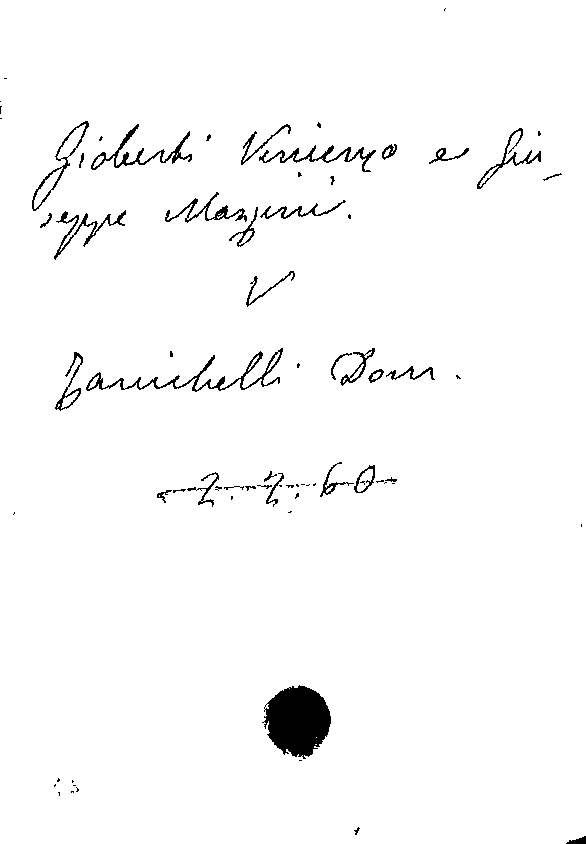 Gioberti Vincenzo e Giu-
seppe Mazzini.
V
Zanichelli Dom.
2.2.60